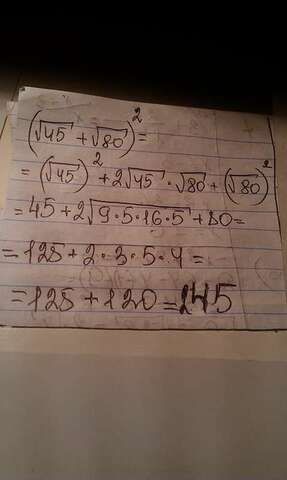 (√45 + √80)² =
= (√45)² + 2√45 · √80 + (√80)²
= 45 + 2√9·5·16·5 + 80 =
= 125 + 2·3·5·4 =
= 125 + 120 = 145